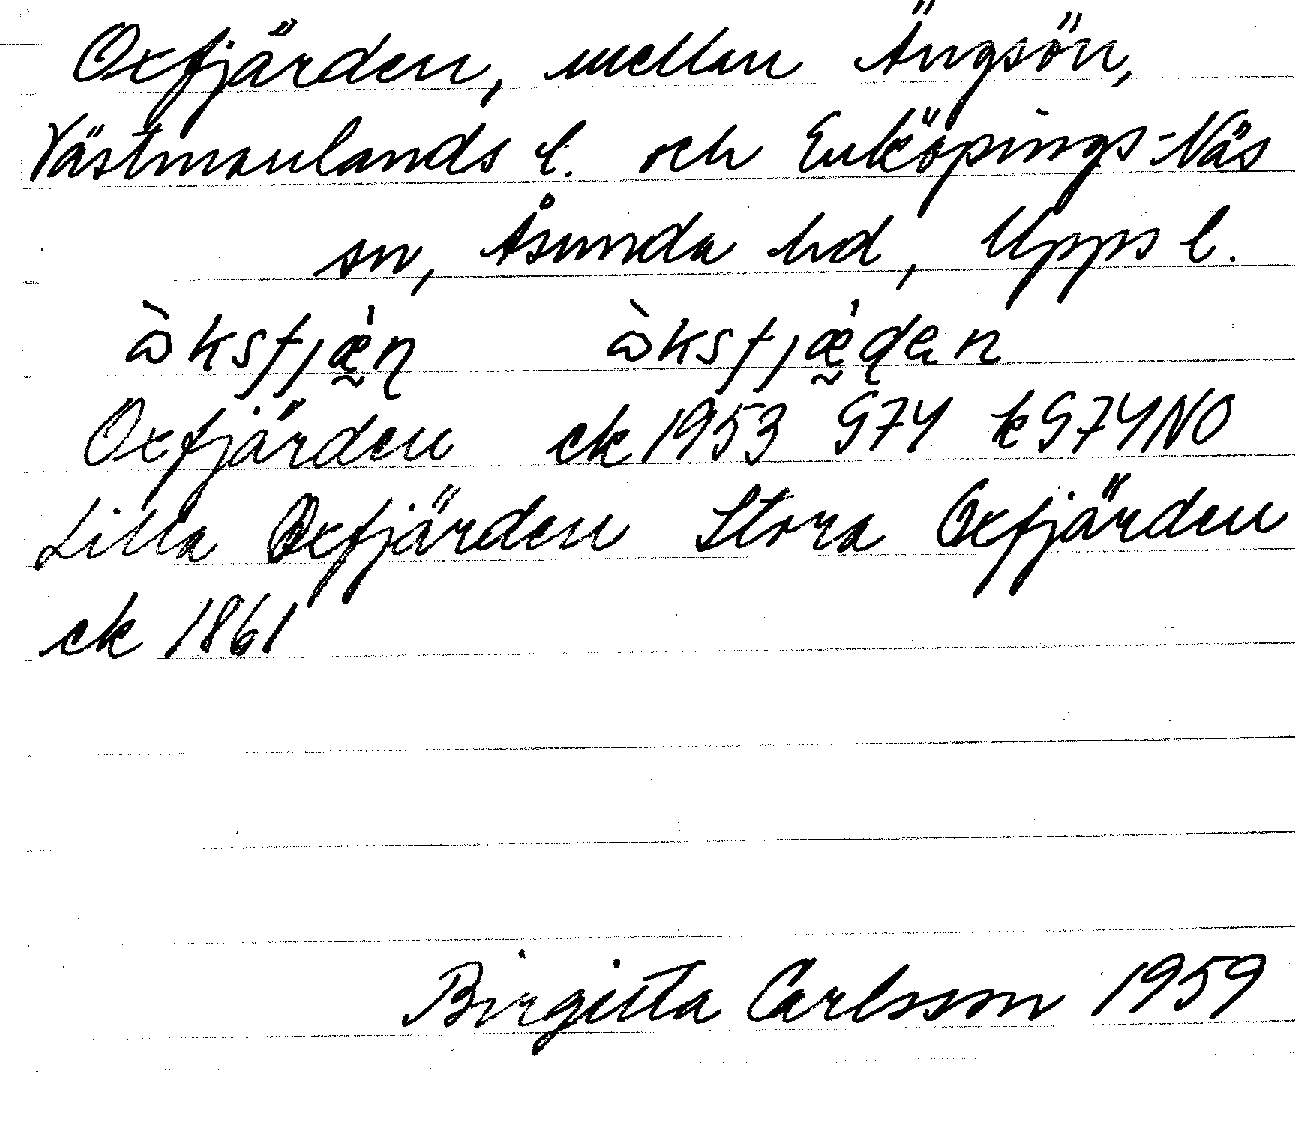 Oxfjärden, mellan Ängsön,
Västmanlands l. och Enköpings-Näs
sn, Åsunda hd, Upps l.
ὼksfjæ̰̀ɳ ὼksfjæ̰̀ɖan
Oxfjärden ek 1953 G74 kG74NO
Lilla Oxfjärden Stora Oxfjärden
ck 1861
Birgitta Carlsson 1959